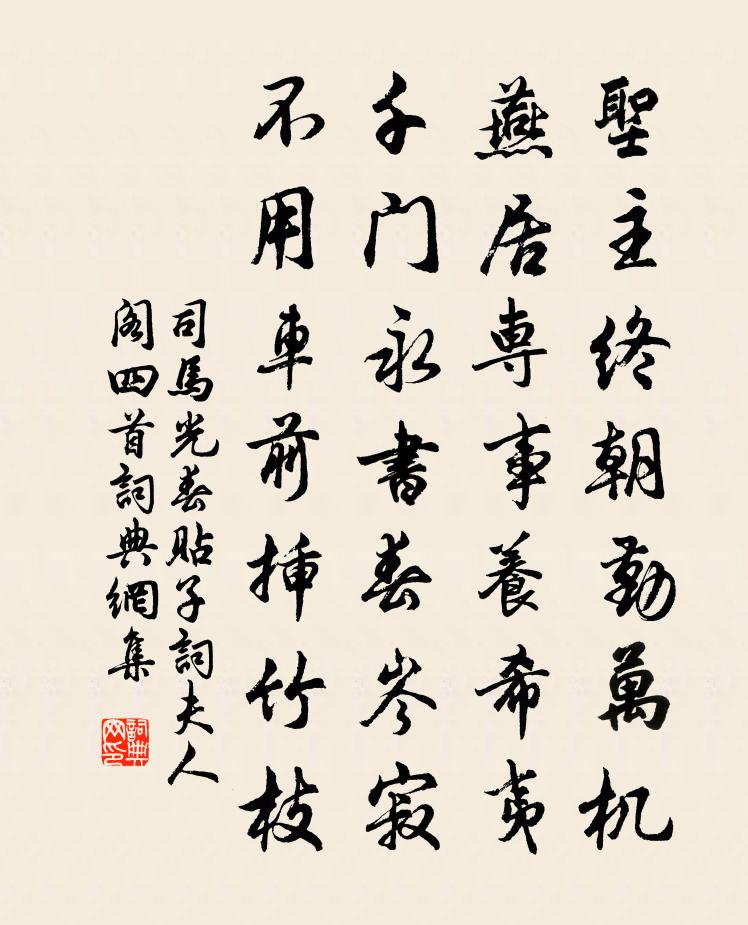 聖主終朝勤萬机
燕居専事養希夷
千门永書春岑寂
不用車前挿竹枝
司馬光春貼子詞夫人
閣四首詞典網集
詞典
网印